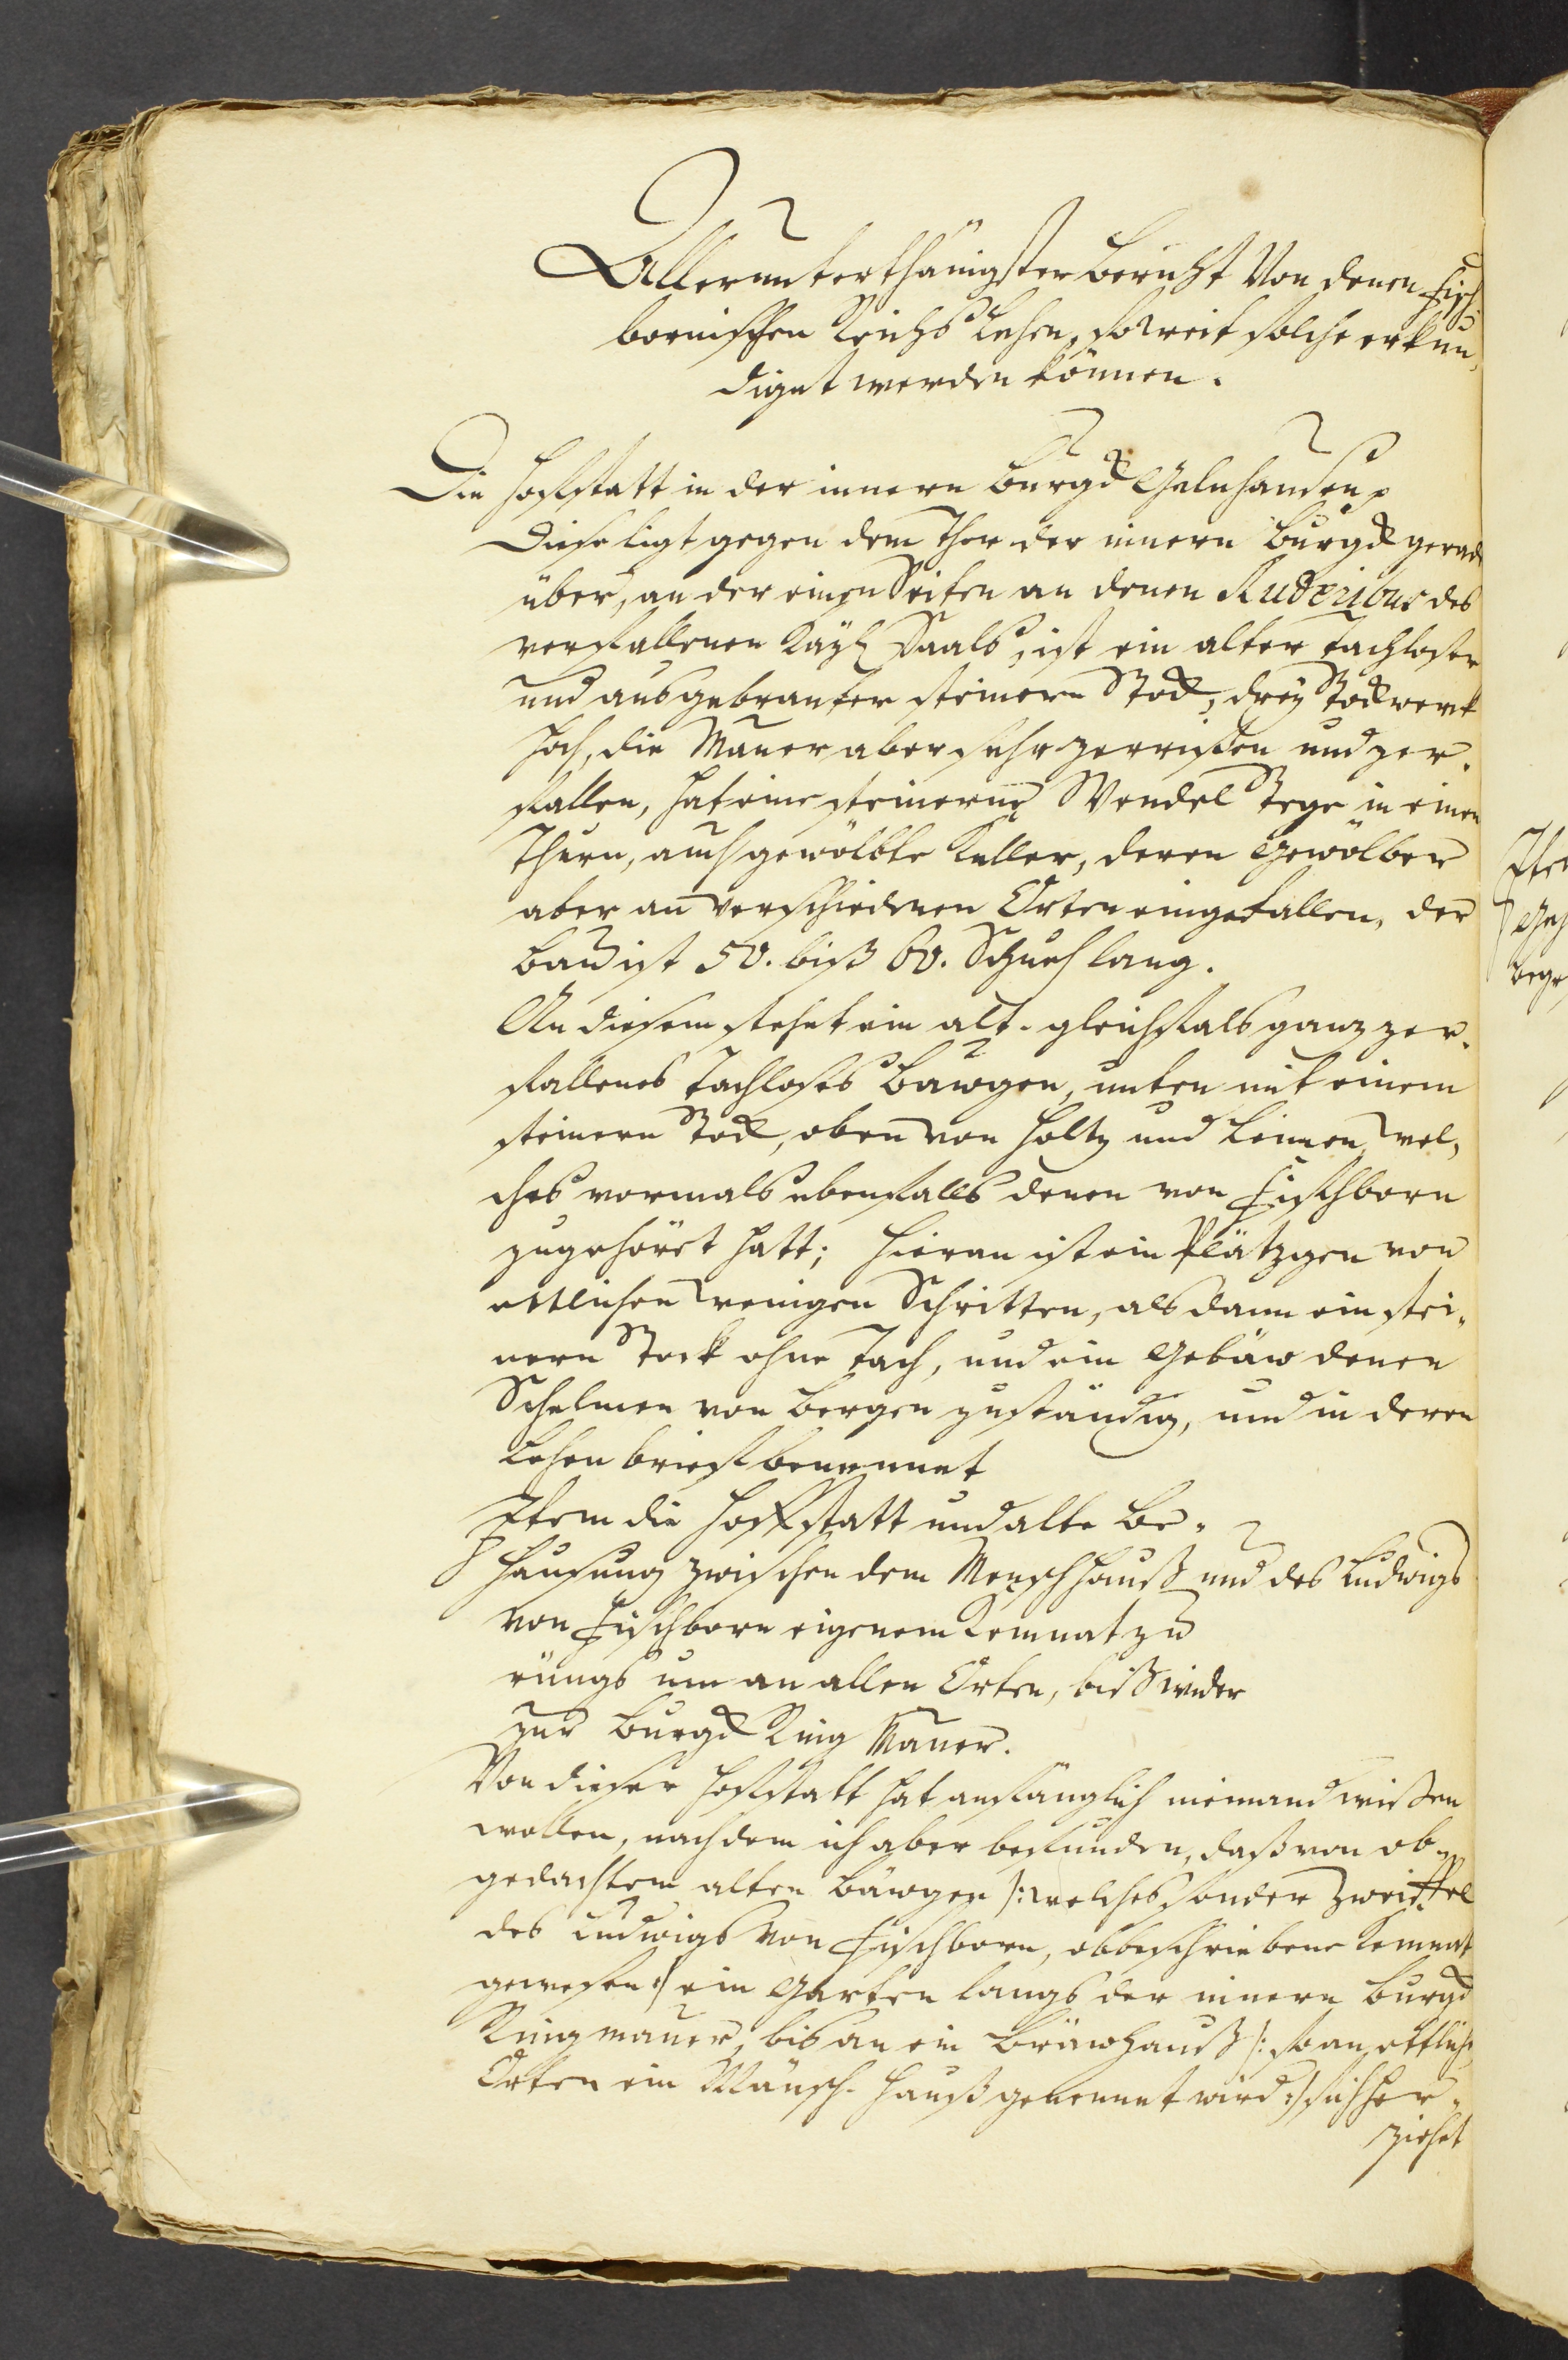 Allerunterthänigster Bericht Von denen Fisch-
bornischen Reichs Lehen, so weit solche erkun-
diget werden können.
Die Hoffstatt in der innern Burgk Gelnhausen
Diese ligt gegen dem Thor der innern Burgk gerad
über, an der einen Seiten an denen Ruderibus des
verfallenen Kayß Saals, ist ein alter tachloser
und ausgebranter steinern Stock, drey Stockwerk
hoch, die Mauer aber sehr zerrißen und zer-
fallen, hat eine steinerne Wendel Stege in einen
Thurn, auch gewölbte Keller, deren Gewölber
aber an verschiedenen Orten eingefallen, der
Bau ist 50. biß 60. Schueh lang.
An diesem stehet ein alt- gleichfals ganz zer-
fallenes tachloses Bawgen, unten mit einem
steinern Stock, oben von Holtz und Leimen, wel-
ches vormals ebenfalls denen von Fischborn
zugehöret hatt; hieran ist ein Plätzgen von
ettlichen wenigen Schritten, alsdann ein stei-
nern Stock ohne Tach, und ein Gebäw denen
Schelmen von Bergen zuständig, und in deren
Lehen brieff benennet
Item die Hoffstatt und alte Be-
hausung zwischen dem Menschhauß und des Ludwigs
von Fischborn eigenem Kemnat zu
rüngs um an allen Orten, biß wider
zur Burgk Ring Mauer.
Von dieser Hoffstatt hat anfänglich niemand wißen
wollen, nach dem ich aber befunden, daß von ob-
gedachtem alten Bäwgen /: welches sonder Zweiffel
des Ludwigs von Fischborn, obbeschriebene Kemnat
gewesen :/ ein Garten langs der innern Burgk
Ringmauer, bis an ein Bräwhauß /: so an ettlich
Orten ein Mänsch- Hauß genennet wird :/ sich her-
ziehet